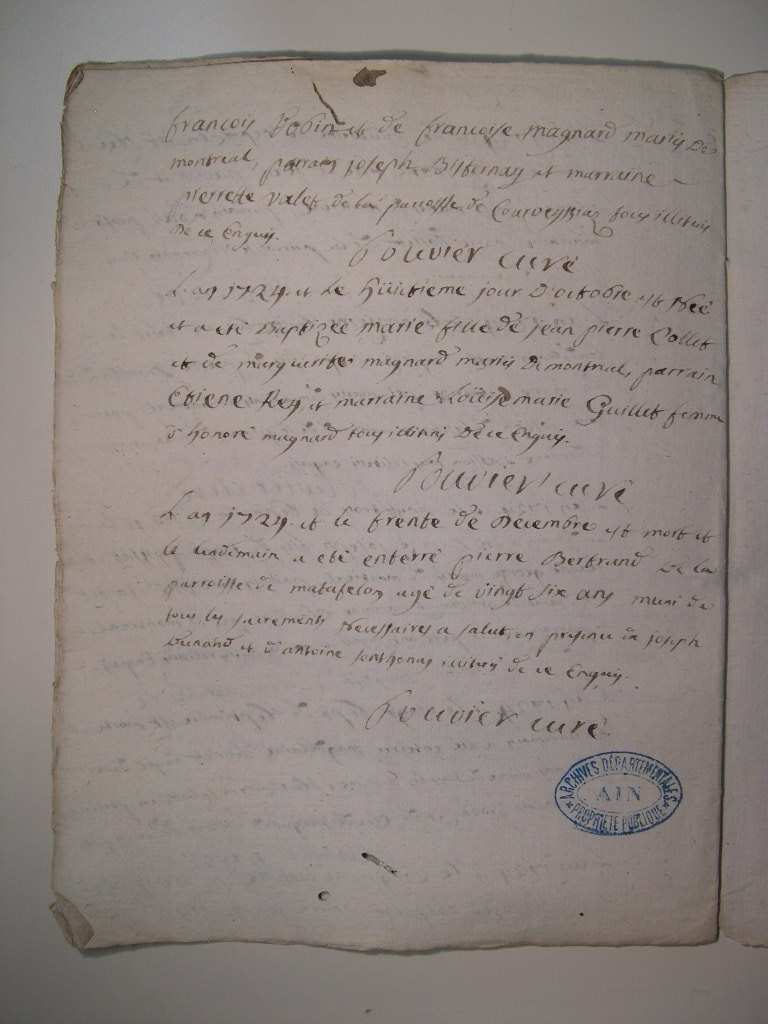 françois Robin et de françoise magnard mariés De
montreal, parrain joseph et marraine
pierrette Valet de la paroisse de tous illitrés
De ce Enquis.
Bouvier curé
L'an 1724 et Le huitieme jour D'octobre est Née
et a eté Baptizée marie fille de jean pierre Collet
et de marguerite magnard mariés De montreal, parrain
Etiene Rey et marraine Loüise marie Guillet femme
d'honoré magnard tous illitrés De ce Enquis.
Bouvier curé
L'an 1724 et le trente de Décembre est mort et
le lendemain a eté enterré pierre Bertrand De la
parroisse de matafelon agé de vingt six ans muni de
tous les sacrements Necessaires a salut, en presence de joseph
Durand et d'antoine illitrés de ce Enquis.
Bouvier curé
ARCHIVES DÉPARTEMENTALES
AIN
PROPRIÉTÉ PUBLIQUE